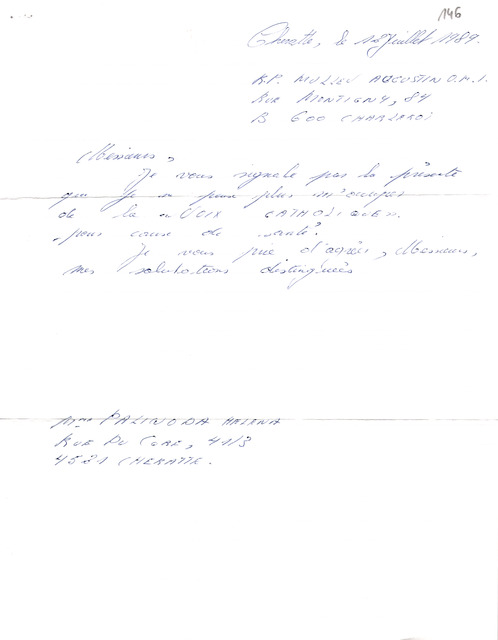 146
Cheratte, le 12 Juillet 1989.
R.P. MULLER AUGUSTIN O.M.I.
RUE MONTIGNY, 84
B 600 CHARLEROI
Messieurs,
Je vous signale par la présente
que je ne puise plus m'occuper
de la "VOIX CATHOLIQUE".
pour cause de santé.
Je vous prie d'agréer, Messieurs,
mes salutations distinguées
Mme PALINODA HELENA
RUE DU CURE, 41/3
4521 CHERATTE.